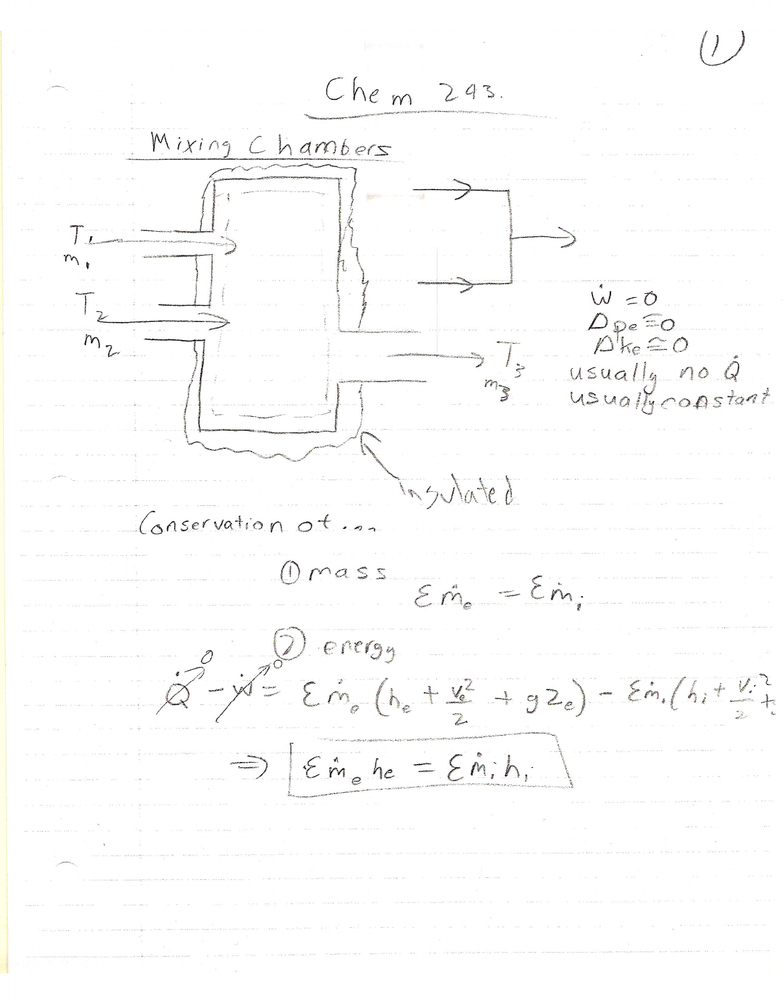 ①
Chem 243.
Mixing Chambers
T₁
m₁
T₂
m₂
T₃
m₃
Ẇ = 0
Δpe ≅ 0
Δke ≅ 0
usually no Q̇
usually constant
insulated
Conservation of ...
① mass
Σṁₑ = Σṁᵢ
② energy
Q̇ 0 - Ẇ 0 = Σṁₑ (hₑ + vₑ²/2 + gZₑ) - Σṁᵢ (hᵢ + vᵢ²/2 +
⇒ Σṁₑ hₑ = Σṁᵢ hᵢ